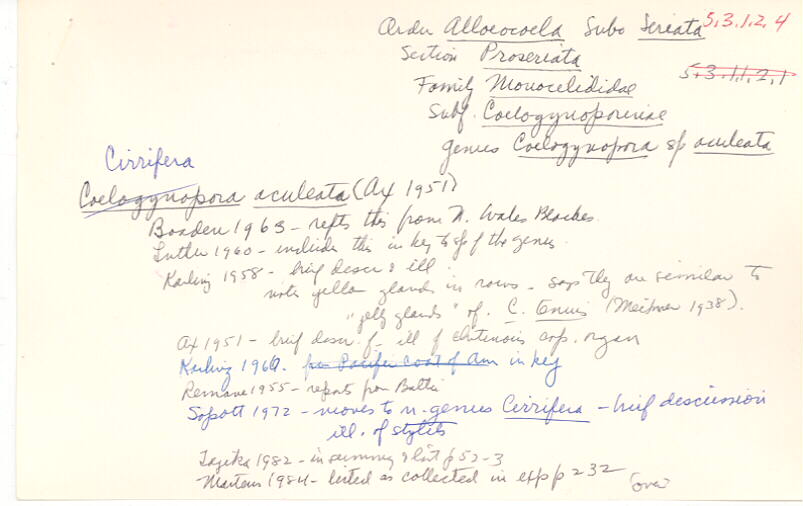 Order Alloeocoela Subo Seriata 5.3.1.2.4
Section Proseriata
Family Monocelididae 5.3.1.1.2.1
Subf. Coelogynoporinae
genus Coelogynopora sp aculeata
Cirrifera
Coelogynopora aculeata (Ax 1951)
Boaden 1963 - repts this from N. Wales Beaches.
Luther 1960 - includes this in key to sp of the genus.
Karling 1958 - brief descr & ill
note yellow glands in rows - says they are similar to
"jelly glands" of C. tenuis (Meixner 1938).
Ax 1951 - brief descr. f. ill of chitinous cop. organ
Karling 1966. from Pacific coast of Am in key
Remane 1955 - reports from Baltic
Sopott 1972 - moves to n. genus Cirrifera - brief discussion
ill. of stylets
Tajika 1982 - in summary & list p 52-3
Martens 1984 - listed as collected in exp p 232 (over)